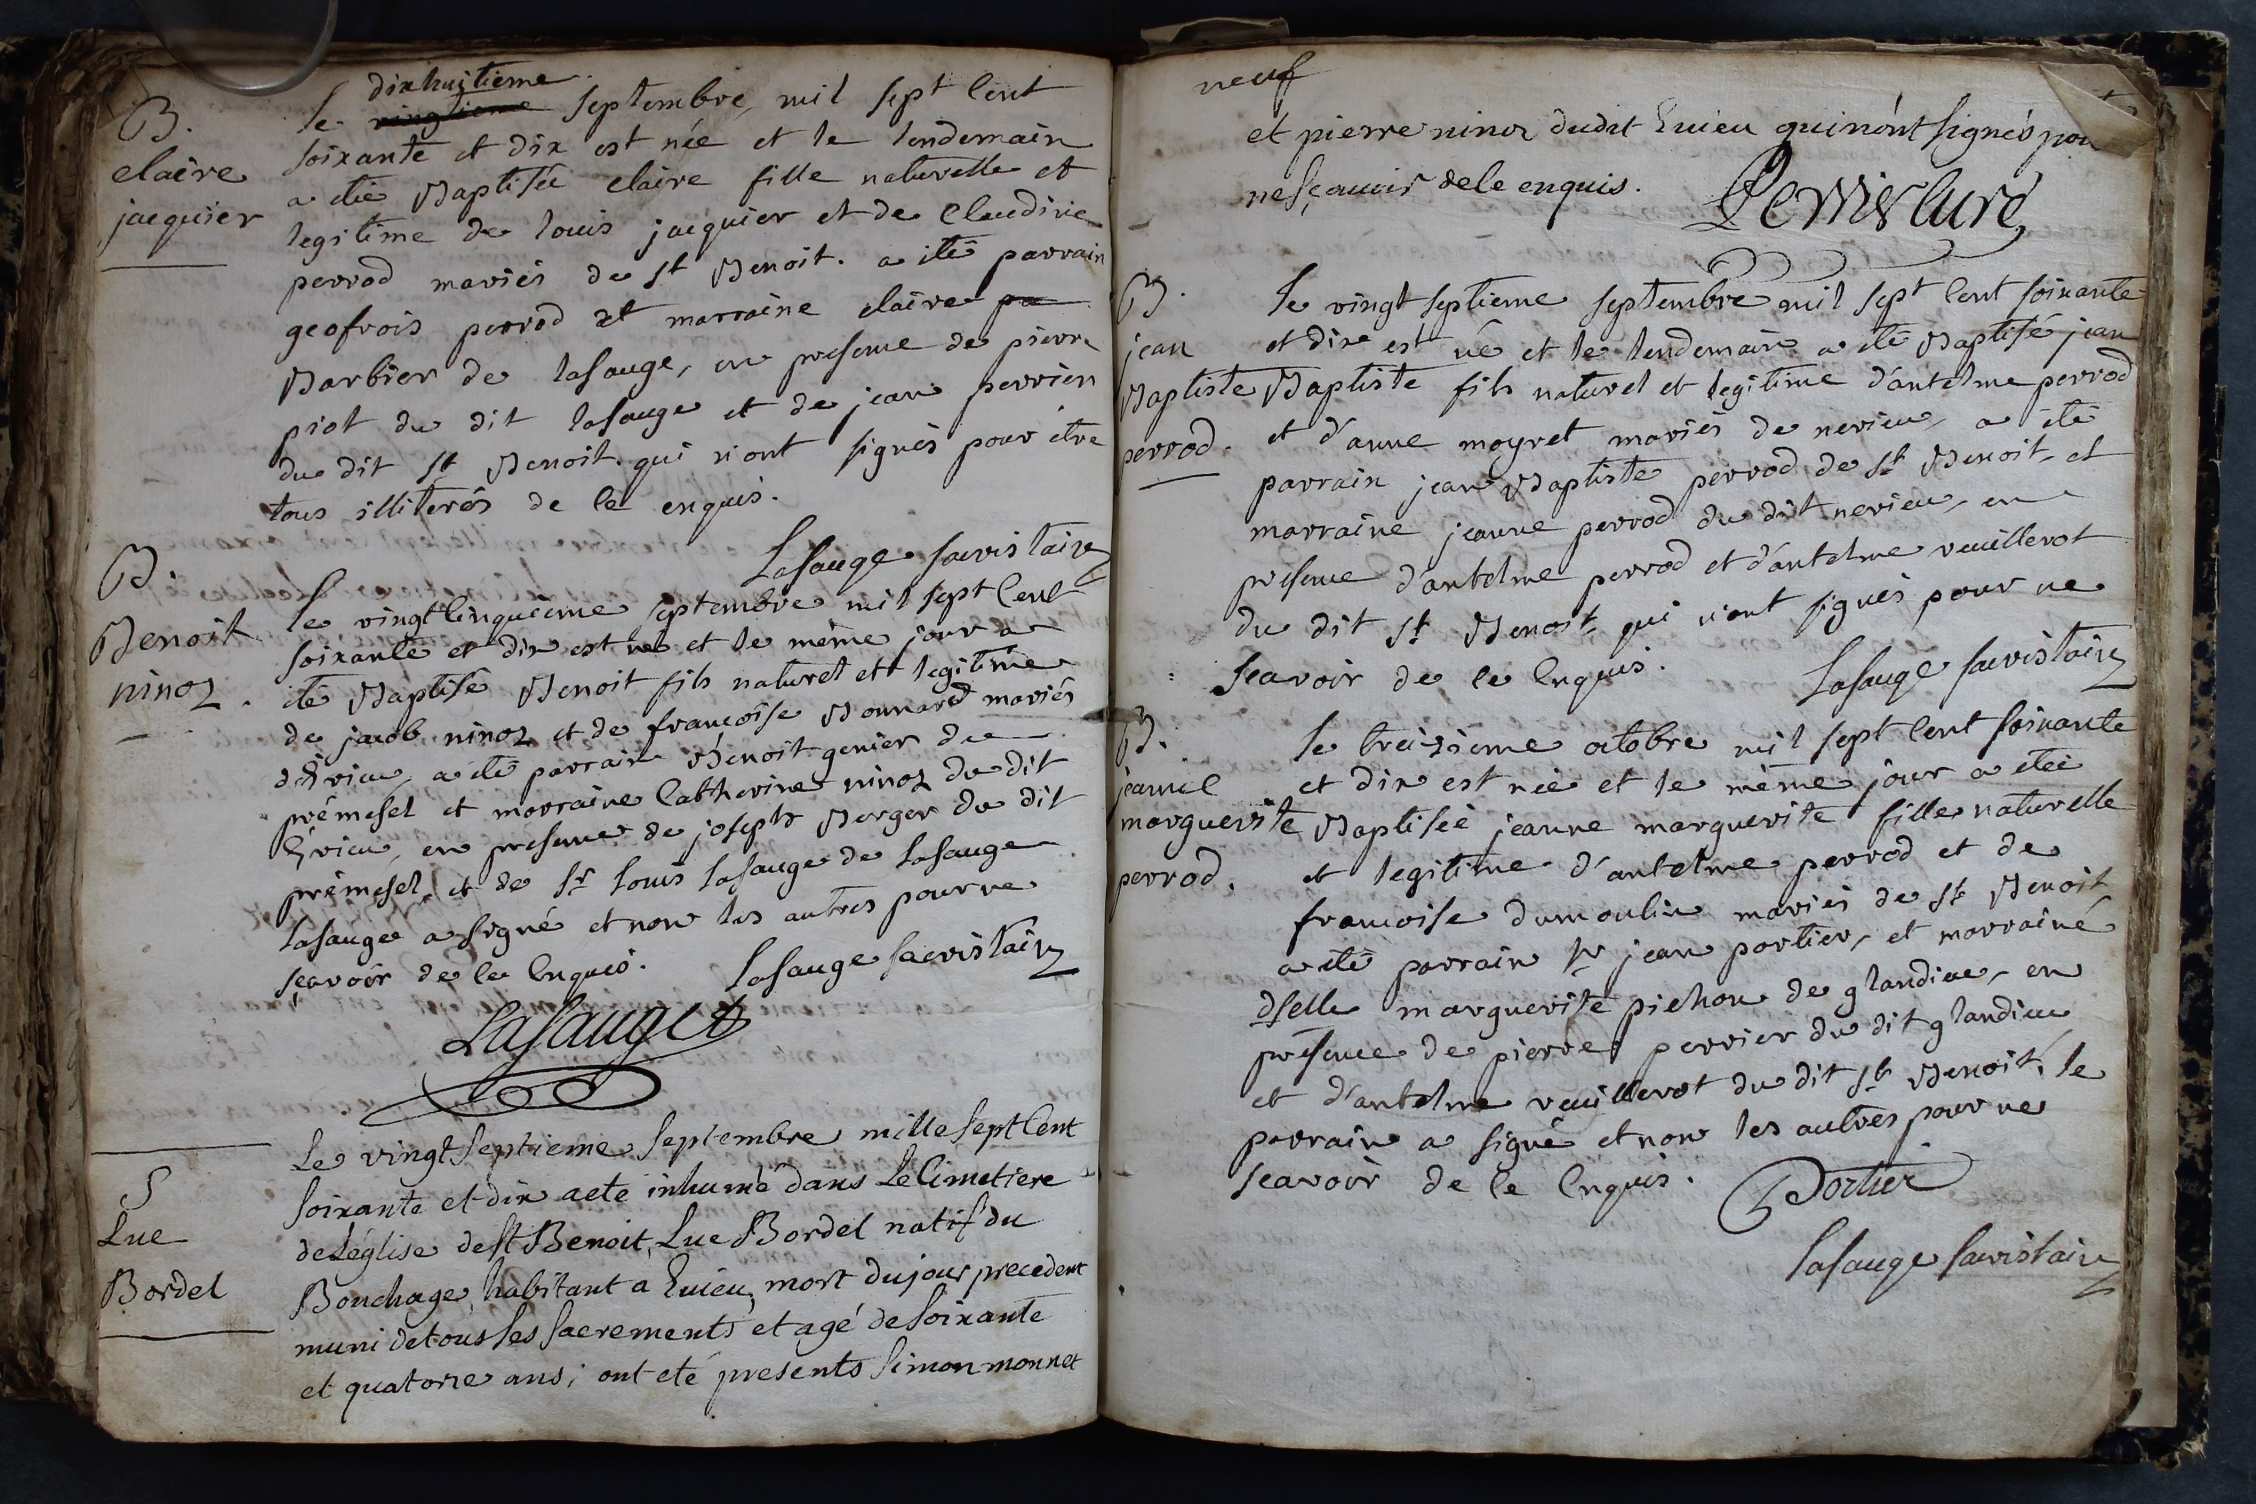 B.
claire
jacquier
dixhuitieme
le vingtieme septembre, mil sept Cent
soixante et dix est née et le lendemain
a été Baptisée claire fille naturelle et
legitime de louis jacquier et de Claudine
perrod mariés de st Benoit. a été parrain
geofrois perrod et marraine claire pa
Barbier de lasauge, en presence de pierre
piot du dit lasauge et de jean perrier
du dit st Benoit. qui n'ont signés pour être
tous illiterés de ce enquis.
Lasauge sacristain
B.
Benoit
ninoz.
le vingt Cinquieme septembre mil sept Cent
soixante et dix est né et le même jour a
été Baptisé Benoit fils naturel et legitime
de jacob ninoz et de françoise Bonnard mariés
d'Evieu, a été parrain Benoit genier de
prémesel et marraine Catherine ninoz du dit
Evieu, en presence de joseph Berger du dit
prémesel, et de sr louis lasauge de lasauge
lasauge a signé et non les autres pour ne
sçavoir de ce Enquis. lasauge sacristain
Lasauge
S
Luc
Bordel
Le vingt septieme septembre mille sept Cent
soixante et dix a eté inhumé dans le Cimetiere
de l'église de st Benoit, Luc Bordel natif du
Bouchage, habitant a Euieu, mort du jour precedent
muni de tous ses sacrements et agé de soixante
et quatorze ans; ont eté presents simon monnet
neuf
et pierre ninoz dudit Euieu qui n'ont signés pour
ne sçauoir de ce enquis.
Perrier Curé
B.
jean
Baptiste
perrod.
le vingt septieme septembre mil sept Cent soixante
et dix est né et le lendemain a été Baptisé jean
Baptiste fils naturel et legitime d'antelme perrod
et d'anne moyret mariés de nerieu, a été
parrain jean Baptiste perrod de st Benoit, et
marraine jeanne perrod du dit nerieu, en
presence d'antelme perrod et d'antelme veuillerot
du dit st Benoit, qui n'ont signés pour ne
scavoir de ce Enquis.
Lasauge sacristain
B.
jeanne
marguerite
perrod.
le treizieme octobre mil sept Cent soixante
et dix est née et le même jour a été
Baptisée jeanne marguerite fille naturelle
et legitime d'antelme perrod et de
françoise dumoulin mariés de st Benoit
a été parrain sr jean portier, et marraine
dselle marguerite pichon de glandieu, en
presence de pierre perrier du dit glandieu
et d'antelme veuillerot du dit st Benoit, le
parrain a signé et non les autres pour ne
scavoir de ce Enquis.
Portier
lasauge sacristain